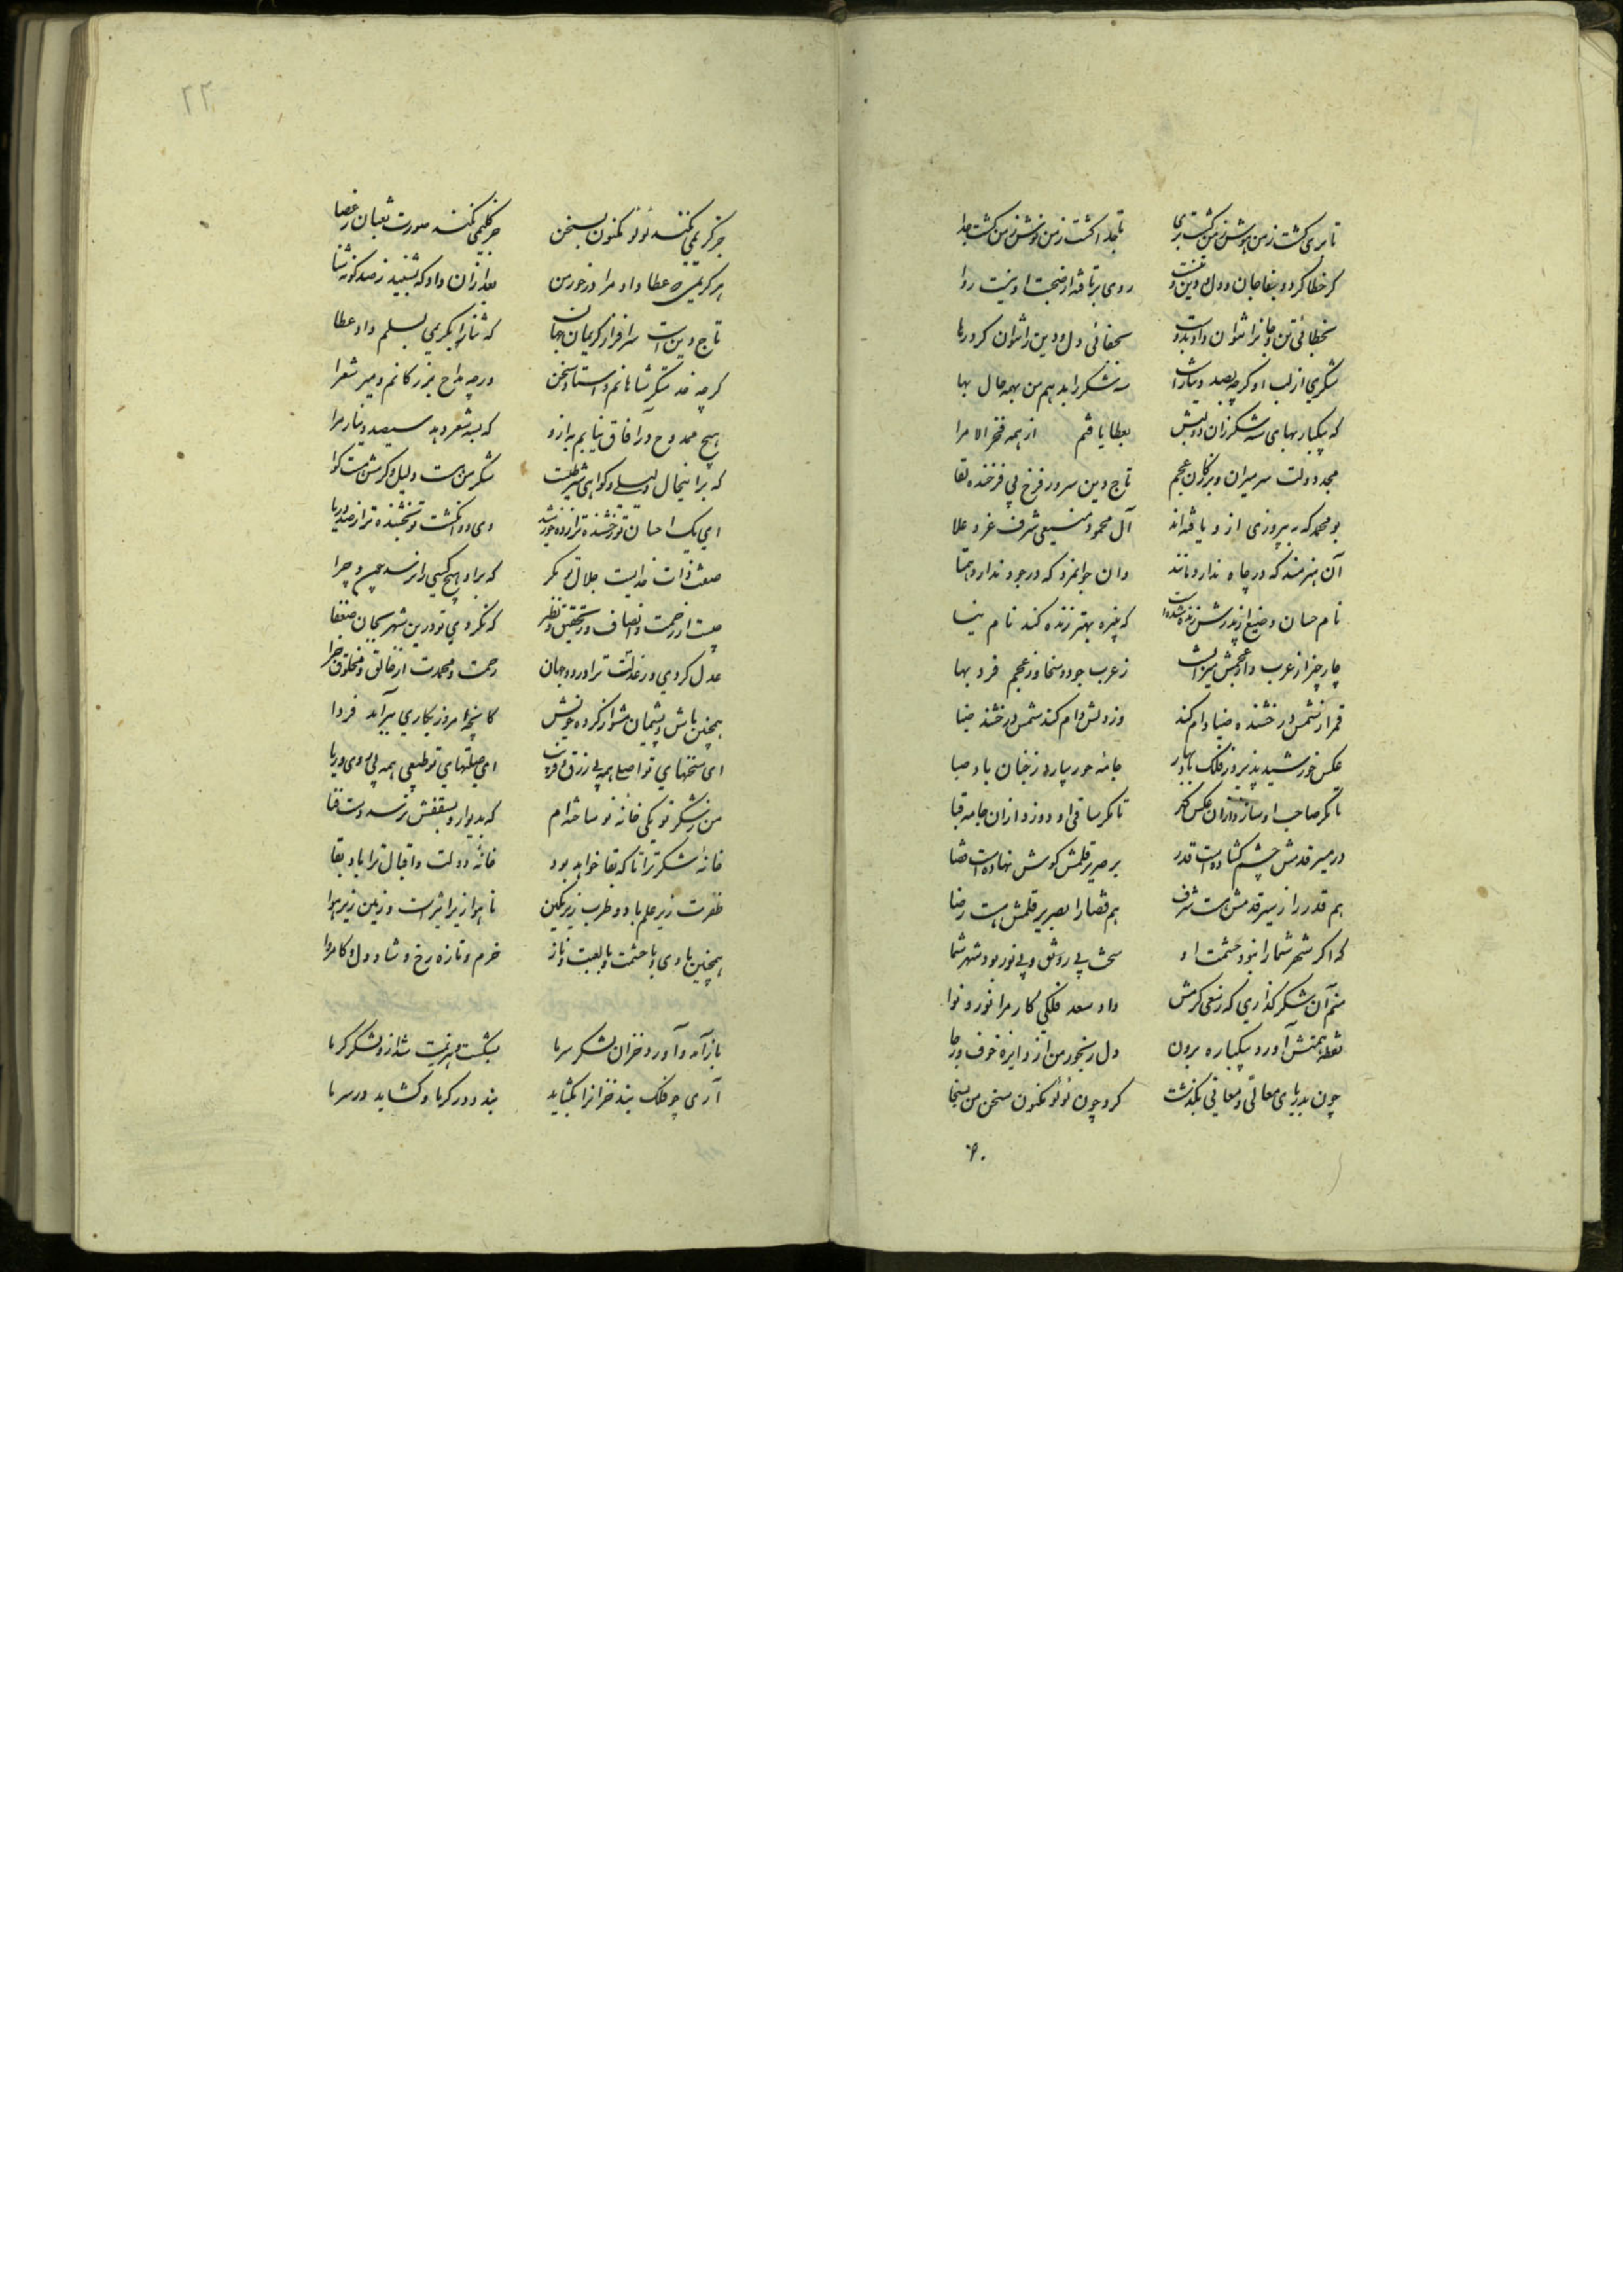 تا بری گشت ز من هوش ز من گشت بری    تا جدا گشت ز من نوش ز من گشت جدا
گر خطا کرد و جان و دل و دین    روی برتافتن از صحبت او نیست روا
بخطائی تن و جان را نتوان داد    بجفائی دل و دین را نتوان کرد رها
شکری از لب او گرچه بصد دینارست    سه شکر را بدهم من بهمه حال بها
که بیکبار بهای سه شکر زان دو لبش    بعطا یافتم از همه فخر الامرا
مجد دولت سر میران و بزرگان عجم    تاج دین سرور فرخ پی فرخنده لقا
بو محمد که به پیروزی ازو یافته‌اند    آل محمود شرف عز و علا
آن هنرمند که در جاه ندارد مانند    وان جوانمرد که در جود ندارد همتا
نام حسان از پدرش زنده شدست    که نبیره بهتر زنده کند نام نیا
چار چیز از عرب و از عجمش میراث    ز عرب جود و سخا وز عجم فر و بها
قمر از شمس درخشنده ضیا وام کند    وز دلش وام کند شمس درخشنده ضیا
عکس خورشید پذیرد ز فلک    جامه حور بیارد ز جنان باد صبا
تا کمر صاحب او سازد از آن عکس کمر    تا مگر ساقی او دوزد از آن جامه قبا
در مسیر قدمش چشم گشادست قدر    بر صریر قلمش گوش نهادست قضا
هم قدر را ز مسیر قدمش هست شرف    هم قضا را بصریر قلمش هست رضا
که اگر شهر شما را نبود حشمت او    سخت بی رونق و بی نور بود شهر شما
منم آن شکرگذاری که ز سعی کرمش    داد سعد فلکی کار مرا نور و نوا
نقطه همتش آورد بیکباره برون    دل رنجور من از دایره خوف و رجا
چون بدریای معالی و معانی بگذشت    کرد چون لؤلؤ مکنون سخن من بسخا
جز
جز کریمی نکند لؤلؤ مکنون بسخن    جز کلیمی نکند صورت ثعبان ز عصا
هر کریمی که عطا داد مرا درخور من    بعد از آن داد که بشنید ز صد گونه ثنا
تاج دین است سرافراز کریمان جهان    که ثنا را بکریمی بسلم داد عطا
گرچه خدمتگر شاهانم و استاد سخن    ورچه مداح بزرگانم و میر شعرا
هیچ ممدوح در آفاق نیابم به ازو    که بسه شعر دهد سیصد دینار مرا
که برینحال دلیلی و گواهی شرطست    شکر من هست دلیل و کرمش هست گوا
ای یک احسان تو رخشنده‌تر از ده خورشید    وی دو انگشت تو بخشنده‌تر از صد دریا
صفت ذات خدایست جلال تو مگر    که برو هیچ کسی را نرسد چون و چرا
چیست از رحمت و انصاف و ز تحقیق و نظر    که نکردی تو درین شهر بجای ضعفا
عدل کردی و ز عدلت ترا در دو جهان    رحمت و محمدت از خالق و مخلوق جزا
همچنین باش و پشیمان مشو از کرده خویش    کانچه امروز بکاری ببر آید فردا
ای سخنهای تو اصلی همه بی زرق و فریب    ای صلتهای تو طبعی همه بی روی و ریا
من ز شکر تو یکی خانه نو ساخته‌ام    که بدیوار و بسقفش نرسد دست فنا
خانه شکر ترا تا که بقا خواهد بود    خانه دولت و اقبال ترا باد بقا
ظفرت زیر علم باد و طرب زیر نگین    تا هوا زیر اثیرست و زمین زیر هوا
همچنین بادی با حشمت و با لعبت و ناز    خرم و تازه رخ و شاد دل و کامروا
باز آمد و آورد خزان لشکر سرما    بشکست و هزیمت شد ازو لشکر گرما
آری چو فلک بند خزان را بگشاید    بندد در گرما و گشاید در سرما